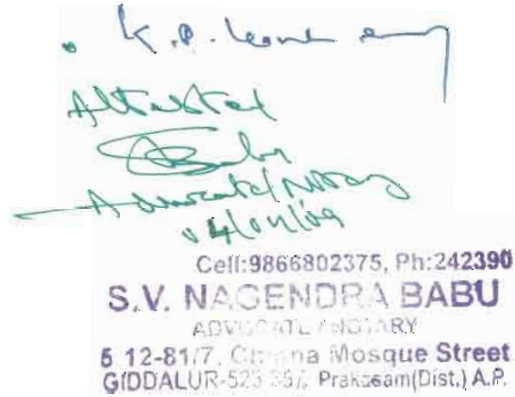 K.P.
Attested
Advocate/Notary
04/04/09
Cell:9866802375, Ph:242390
S.V. NAGENDRA BABU
ADVOCATE / NOTARY
5 12-81/7, Mosque Street
GIDDALUR-523 357, Prakasam(Dist.) A.P.